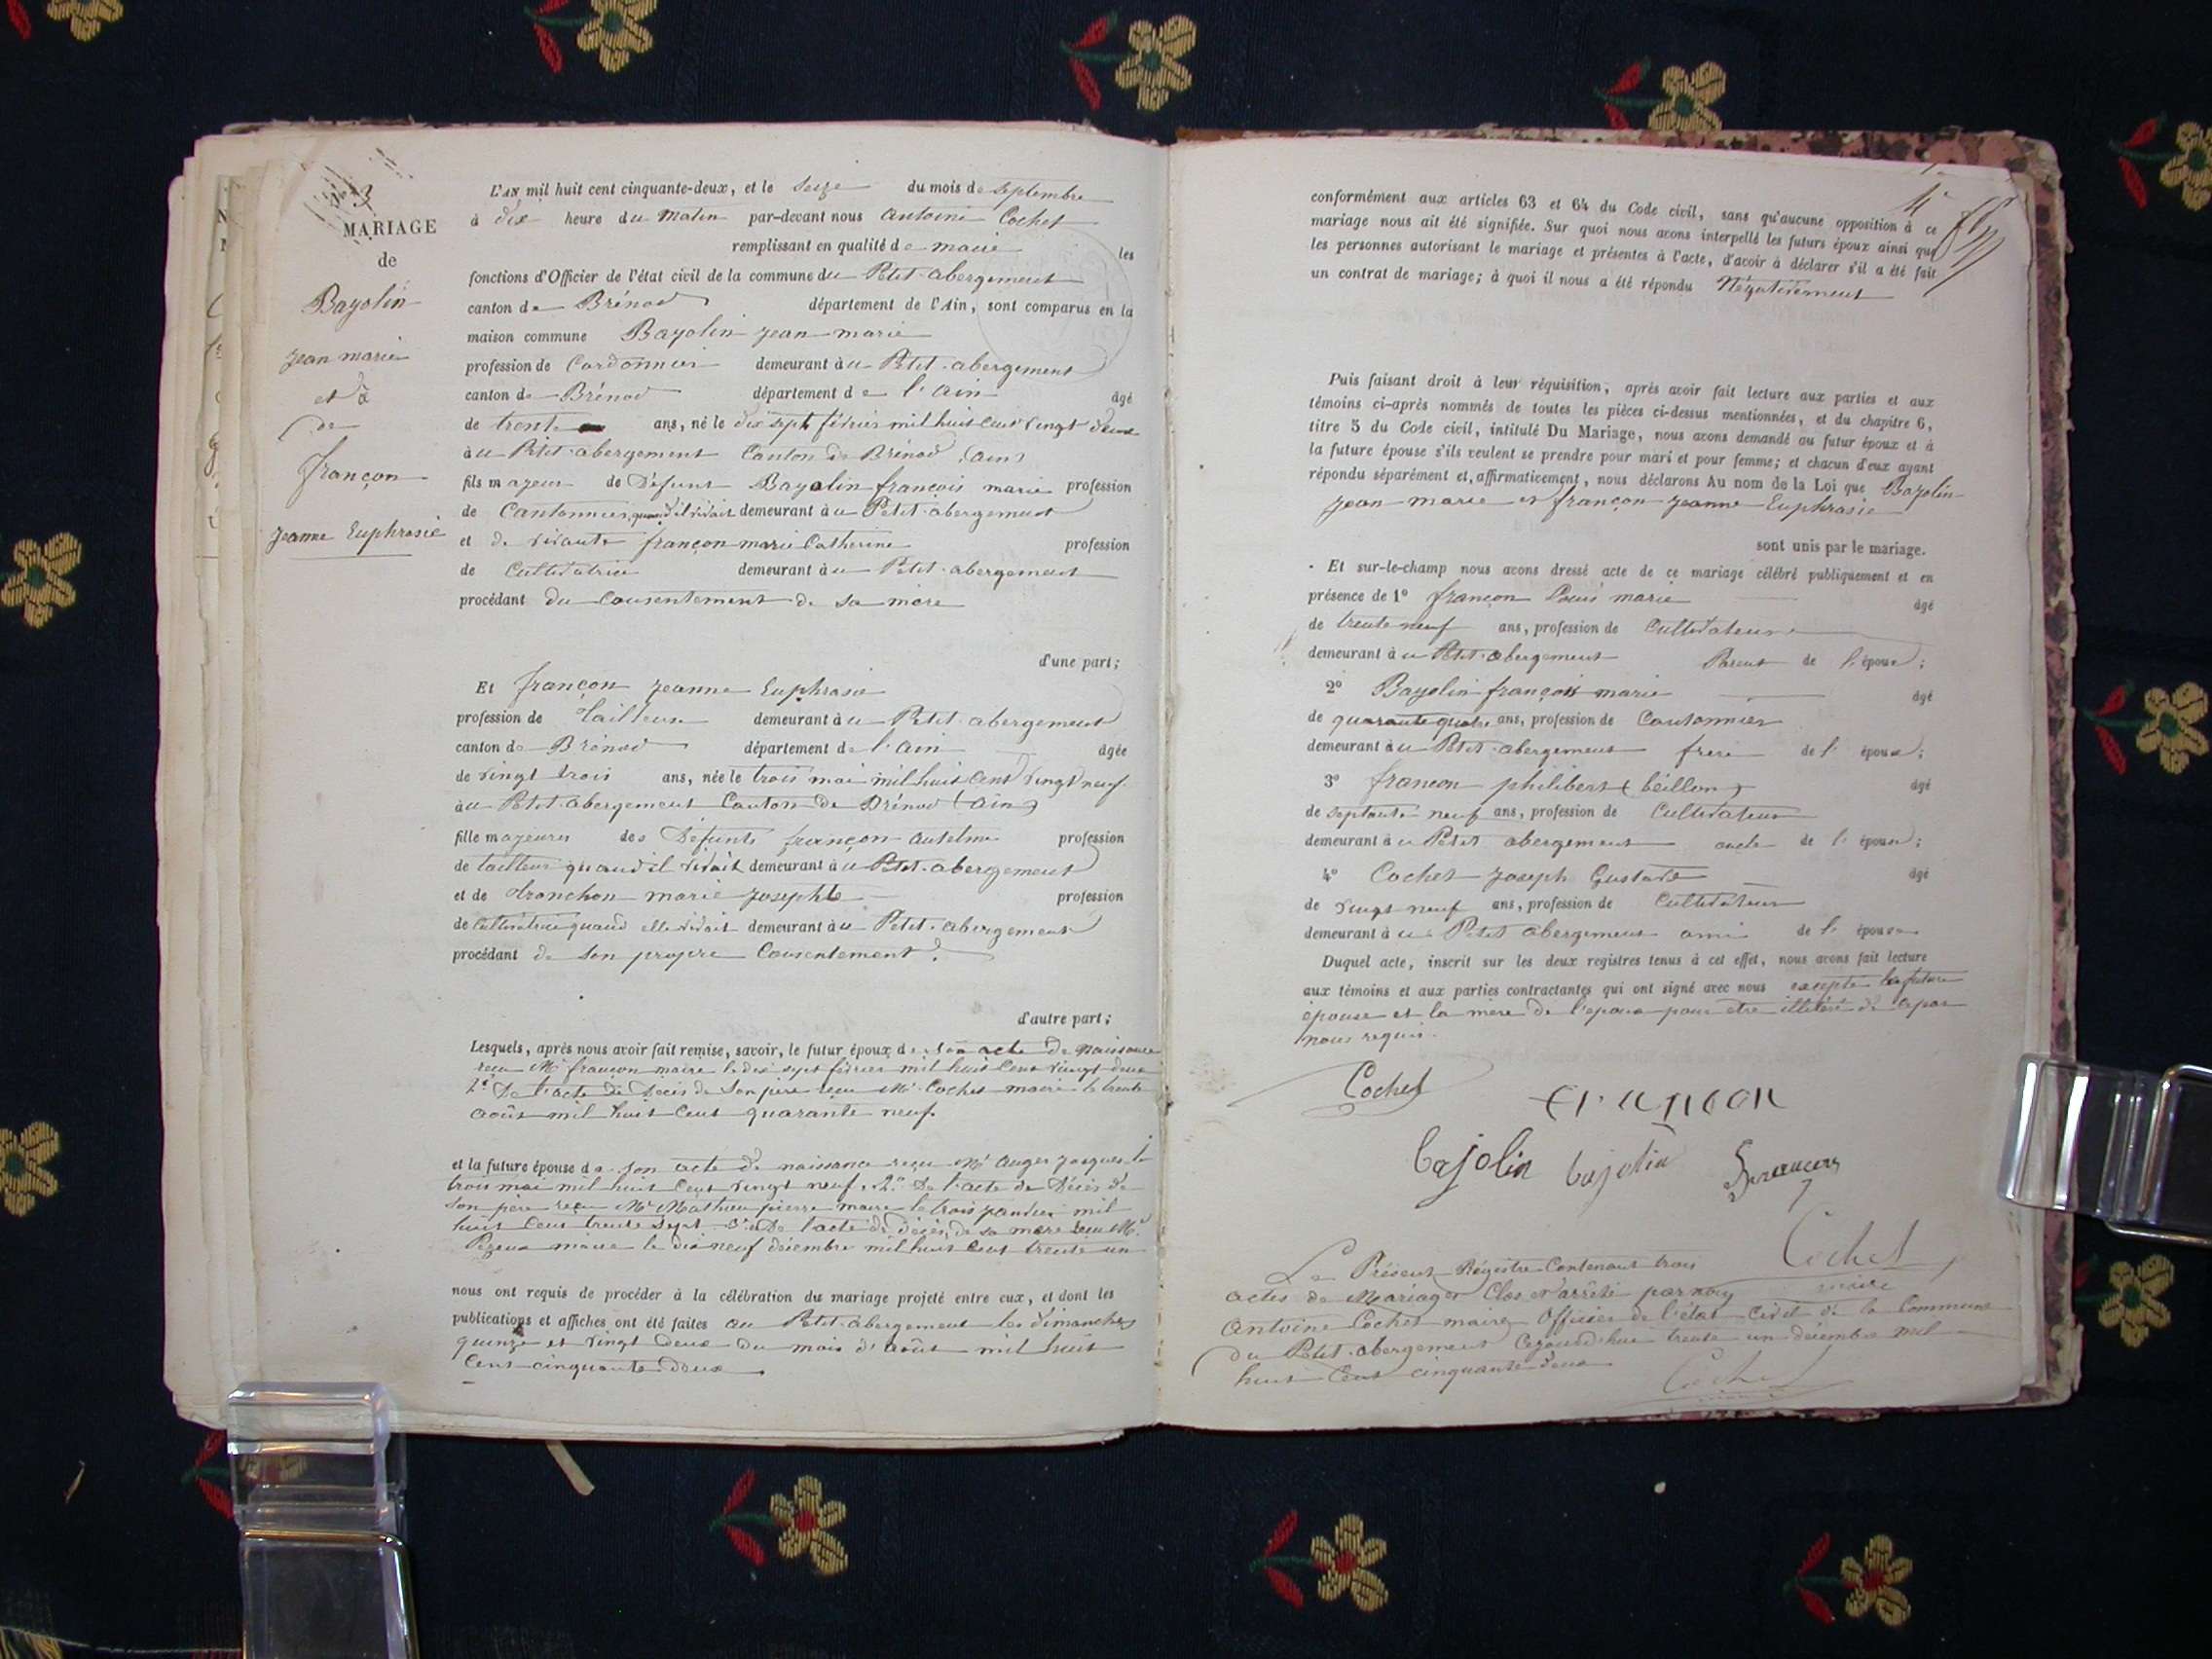 3
MARIAGE
de
Bajolin
jean marie
et d
de
françon
jeanne Euphrasie
L'AN mil huit cent cinquante-deux, et le seize du mois de septembre
à dix heure du matin par-devant nous antoine Cochet
remplissant en qualité de maire les
fonctions d'Officier de l'état civil de la commune du Petit-abergement
canton de Brénod département de l'Ain, sont comparus en la
maison commune Bajolin jean marie
profession de Cordonnier demeurant au Petit-abergement
canton de Brénod département de l'ain âgé
de trente ans, né le dix sept février mil huit cent vingt deux
au Petit-abergement Canton de Brénod (ain)
fils majeur de Défunt Bajolin françois marie profession
de Cantonnier quand il vivait demeurant au Petit-abergement
et de vivante françon marie Catherine profession
de Cultivatrice demeurant au Petit-abergement
procédant du Consentement de sa mère
d'une part;
Et françon jeanne Euphrasie
profession de tailleuse demeurant au Petit abergement
canton de Brénod département de l'ain âgée
de vingt trois ans, née le trois mai mil huit cent vingt neuf
au Petit-abergement Canton de Brénod (ain)
fille majeure des Défunts françon antelme profession
de tailleur quand il vivait demeurant au Petit-abergement
et de tranchon marie josephte profession
de Cultivatrice quand elle vivait demeurant au Petit-abergement
procédant de son propre Consentement.
d'autre part;
Lesquels, après nous avoir fait remise, savoir, le futur époux de son acte de naissance
reçu Mr françon maire le dix sept février mil huit cent vingt deux
2º De l'acte de Décès de Son père reçu Mr Cochet maire le trente
août mil huit cent quarante neuf.
et la future épouse de son acte de naissance reçu Mr auger jacques le
trois mai mil huit cent vingt neuf, 2º De l'acte de Décès de
son père reçu Mr Mathieu pierre maire le trois janvier mil
huit cent trente sept 3º De l'acte de décès de sa mère reçu Mr
maire le dix neuf décembre mil huit cent trente un
nous ont requis de procéder à la célébration du mariage projeté entre eux, et dont les
publications et affiches ont été faites au Petit-abergement les dimanches
quinze et vingt deux du mois d'août mil huit
Cent cinquante deux
4
conformément aux articles 63 et 64 du Code civil, sans qu'aucune opposition à ce
mariage nous ait été signifiée. Sur quoi nous avons interpellé les futurs époux ainsi que
les personnes autorisant le mariage et présentes à l'acte, d'avoir à déclarer s'il a été fait
un contrat de mariage; à quoi il nous a été répondu Négativement
Puis faisant droit à leur réquisition, après avoir fait lecture aux parties et aux
témoins ci-après nommés de toutes les pièces ci-dessus mentionnées, et du chapitre 6,
titre 5 du Code civil, intitulé Du Mariage, nous avons demandé au futur époux et à
la future épouse s'ils veulent se prendre pour mari et pour femme; et chacun d'eux ayant
répondu séparément et, affirmativement, nous déclarons Au nom de la Loi que Bajolin
jean marie et françon jeanne Euphrasie
sont unis par le mariage.
Et sur-le-champ nous avons dressé acte de ce mariage célébré publiquement et en
présence de 1º françon Louis marie âgé
de trente neuf ans, profession de Cultivateur
demeurant au Petit-abergement Parent de l'époux;
2º Bajolin françois marie âgé
de quarante quatre ans, profession de Cantonnier
demeurant au Petit-abergement frère de l'époux;
3º francon philibert (béillon) âgé
de septante neuf ans, profession de Cultivateur
demeurant au Petit abergement oncle de l'épouse;
4º Cochet joseph Gustave âgé
de vingt neuf ans, profession de Cultivateur
demeurant au Petit abergement ami de l'épouse
Duquel acte, inscrit sur les deux registres tenus à cet effet, nous avons fait lecture
aux témoins et aux parties contractantes qui ont signé avec nous excepté la future
épouse et la mère de l'époux pour être illitéré de ce par
nous requis.
Cochet francon
bajolin bajolin francon
Cochet
maire
Le Présent Régistre Contenant trois
actes de Mariages Clos et arrêté par nous
antoine Cochet maire Officier de l'état Civil de la Commune
du Petit-abergement Cejourd'hui trente un décembre mil
huit Cent cinquante deux
Cochet